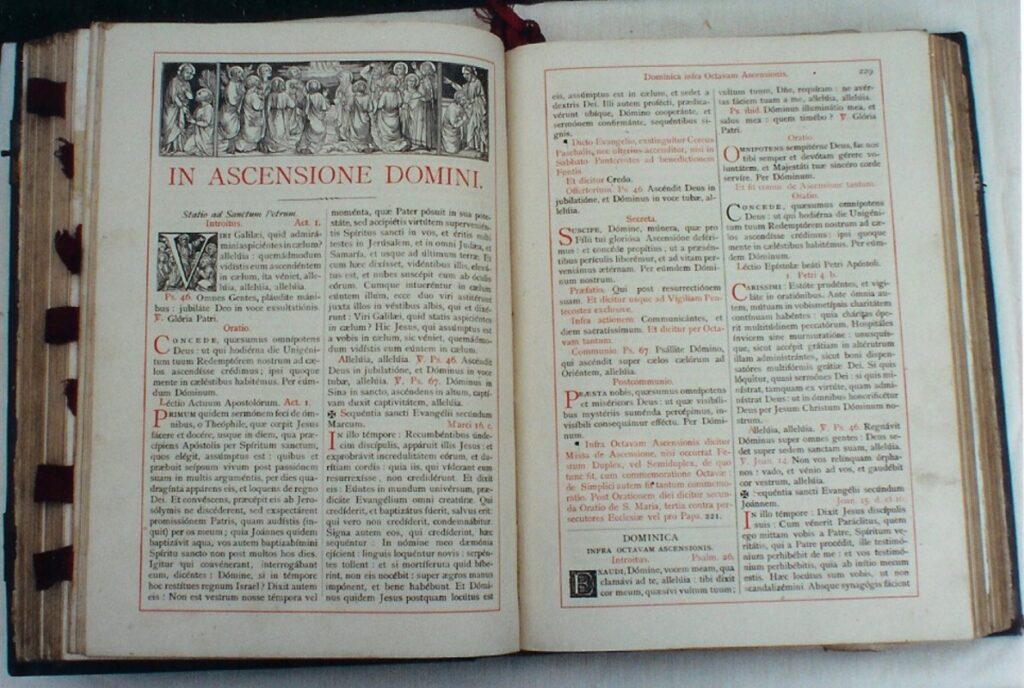 IN ASCENSIONE DOMINI.
Statio ad Sanctum Petrum.
Introitus. Act. 1.
VIRI Galilǽi, quid admirá-
mini aspiciéntes in cælum?
allelúia : quemádmodum
vidístis eum ascendéntem
in cælum, ita véniet, alle-
lúia, allelúia, allelúia.
Ps. 46. Omnes Gentes, pláudite máni-
bus : jubiláte Deo in voce exsultatiónis.
V. Glória Patri.
Oratio.
CONCEDE, quæsumus omnípotens
Deus : ut qui hodiérna die Unigéni-
tum tuum Redemptórem nostrum ad cæ-
los ascendísse crédimus; ipsi quoque
mente in cæléstibus habitémus. Per eúm-
dem Dóminum.
Léctio Actuum Apostolórum. Act. 1.
PRIMUM quidem sermónem feci de óm-
nibus, o Theóphile, quæ cœpit Jesus
fácere et docére, usque in diem, qua præ-
cípiens Apóstolis per Spíritum sanctum,
quos elégit, assúmptus est : quibus et
prǽbuit seípsum vivum post passiónem
suam in multis arguméntis, per dies qua-
dragínta appárens eis, et loquens de regno
Dei. Et convéscens, præcépit eis ab Jero-
sólymis ne discéderent, sed exspectárent
promissiónem Patris, quam audístis (in-
quit) per os meum ; quia Joánnes quidem
baptizávit aqua, vos autem baptizabímini
Spíritu sancto non post multos hos dies.
Igitur qui convénerant, interrogábant
eum, dicéntes : Dómine, si in témpore
hoc restítues regnum Israel? Dixit autem
eis : Non est vestrum nosse témpora vel
moménta, quæ Pater pósuit in sua pote-
státe, sed accipiétis virtútem supervenién-
tis Spíritus sancti in vos, et éritis mihi
testes in Jerúsalem, et in omni Judǽa, et
Samaría, et usque ad últimum terræ. Et
cum hæc dixísset, vidéntibus illis, elevá-
tus est, et nubes suscépit eum ab óculis
eórum. Cumque intueréntur in cælum
eúntem illum, ecce duo viri astitérunt
juxta illos in véstibus albis, qui et dixé-
runt : Viri Galilǽi, quid statis aspiciéntes
in cælum? Hic Jesus, qui assúmptus est
a vobis in cælum, sic véniet, quemádmo-
dum vidístis eum eúntem in cælum.
Allelúia, allelúia. V. Ps. 46. Ascéndit
Deus in jubilatióne, et Dóminus in voce
tubæ, allelúia. V. Ps. 67. Dóminus in
Sina in sancto, ascéndens in altum, captí-
vam duxit captivitátem, allelúia.
✠ Sequéntia sancti Evangélii secúndum
Marcum. Marci 16. c.
IN illo témpore : Recumbéntibus únde-
cim discípulis, appáruit illis Jesus : et
exprobrávit incredulitátem eórum, et du-
rítiam cordis : quia iis, qui víderant eum
resurrexísse, non credidérunt. Et dixit
eis : Eúntes in mundum univérsum, præ-
dicáte Evangélium omni creatúræ. Qui
credíderit, et baptizátus fúerit, salvus erit :
qui vero non credíderit, condemnábitur.
Signa autem eos, qui credíderint, hæc
sequéntur : In nómine meo dæmónia
ejícient : linguis loquéntur novis : serpén-
tes tollent : et si mortíferum quid bíbe-
rint, non eis nocébit : super ægros manus
impónent, et bene habébunt. Et Dómi-
nus quidem Jesus postquam locútus est
Dominica infra Octavam Ascensionis. 229
eis, assúmptus est in cælum, et sedet a
dextris Dei. Illi autem profécti, prædica-
vérunt ubíque, Dómino cooperánte, et
sermónem confirmánte, sequéntibus si-
gnis.
Dicto Evangelio, exstinguitur Cereus
Paschalis, nec ulterius accenditur, nisi in
Sabbato Pentecostes ad benedictionem
Fontis.
Et dicitur Credo.
Offertorium. Ps. 46. Ascéndit Deus in
jubilatióne, et Dóminus in voce tubæ, al-
lelúia.
Secreta.
SUSCIPE, Dómine, múnera, quæ pro
Fílii tui gloriósa Ascensióne deféri-
mus : et concéde propítius ; ut a præsén-
tibus perículis liberémur, et ad vitam per-
veniámus ætérnam. Per eúmdem Dómi-
num nostrum.
Præfatio. Qui post resurrectiónem
suam. Et dicitur usque ad Vigiliam Pen-
tecostes exclusive.
Infra actionem. Communicántes, et
diem sacratíssimum. Et dicitur per Octa-
vam tantum.
Communio. Ps. 67. Psállite Dómino,
qui ascéndit super cælos cælórum ad
Oriéntem, allelúia.
Postcommunio.
PRÆSTA nobis, quæsumus omnípotens
et miséricors Deus : ut quæ visíbili-
bus mystériis suménda percépimus, in-
visíbili consequámur efféctu. Per Dómi-
num.
Infra Octavam Ascensionis dicitur
Missa de Ascensione, nisi occurrat Fe-
stum Duplex, vel Semiduplex, de quo
tunc fit, cum commemoratione Octavæ :
de Simplici autem fit tantum commemo-
ratio. Post Orationem diei dicitur secun-
da Oratio de S. Maria, tertia contra per-
secutores Ecclesiæ vel pro Papa. 221.
DOMINICA
INFRA OCTAVAM ASCENSIONIS.
Introitus. Psalm. 26.
EXAUDI, Dómine, vocem meam, qua
clamávi ad te, allelúia : tibi dixit
cor meum, quæsívi vultum tuum;
vultum tuum, Dñe, requíram : ne avér-
tas fáciem tuam a me, allelúia, allelúia.
Ps. ibid. Dóminus illuminátio mea, et
salus mea : quem timébo? V. Glória
Patri.
Oratio.
OMNIPOTENS sempitérne Deus, fac nos
tibi semper et devótam gérere vo-
luntátem, et Majestáti tuæ sincéro corde
servíre. Per Dóminum.
Et fit comm. de Ascensione tantum.
Oratio.
CONCEDE, quæsumus omnípotens
Deus : ut qui hodiérna die Unigéni-
tum tuum Redemptórem nostrum ad cæ-
los ascendísse crédimus : ipsi quoque
mente in cæléstibus habitémus. Per eúm-
dem Dóminum.
Léctio Epístolæ beáti Petri Apóstoli.
1. Petri 4. b.
CARISSIMI : Estóte prudéntes, et vigi-
láte in oratiónibus. Ante ómnia au-
tem, mútuam in vobismetípsis charitátem
contínuam habéntes : quia cháritas opé-
rit multitúdinem peccatórum. Hospitáles
ínvicem sine murmuratióne : unusquís-
que, sicut accépit grátiam in altérutrum
illam administrántes, sicut boni dispen-
satóres multifórmis grátiæ Dei. Si quis
lóquitur, quasi sermónes Dei : si quis mi-
nístrat, tamquam ex virtúte, quam admi-
nístrat Deus : ut in ómnibus honorificétur
Deus per Jesum Christum Dóminum no-
strum.
Allelúia, allelúia. V. Ps. 46. Regnávit
Dóminus super omnes gentes : Deus se-
det super sedem sanctam suam, allelúia.
V. Joan. 14. Non vos relínquam órpha-
nos : vado, et vénio ad vos, et gaudébit
cor vestrum, allelúia.
✠ Sequéntia sancti Evangélii secúndum
Joánnem. Joan. 15. d. et 16.
IN illo témpore : Dixit Jesus discípulis
suis : Cum vénerit Paráclitus, quem
ego mittam vobis a Patre, Spíritum ve-
ritátis, qui a Patre procédit, ille testimó-
nium perhibébit de me : et vos testimó-
nium perhibébitis, quia ab inítio mecum
estis. Hæc locútus sum vobis, ut non
scandalizémini. Absque synagógis fácient